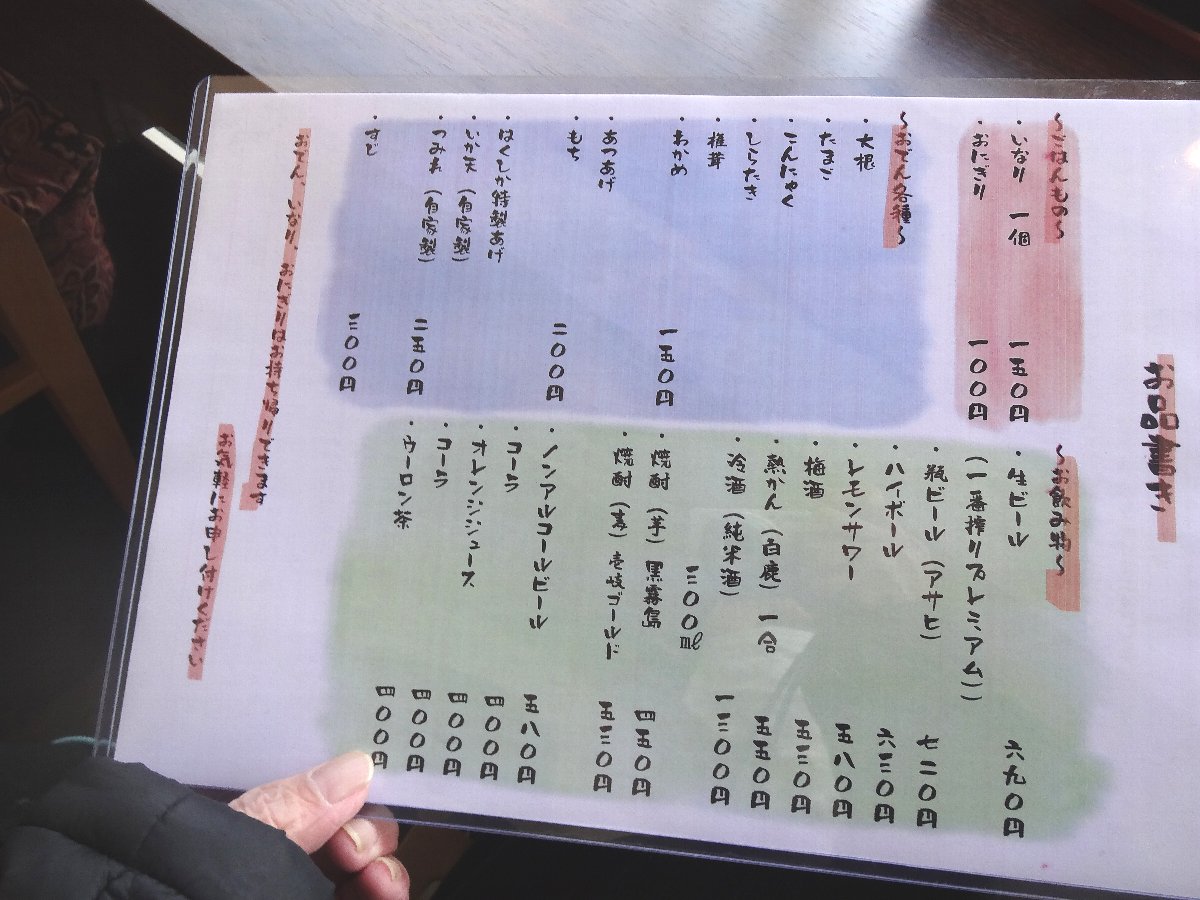 お品書き
～ごはんもの～
・いなり 一個 一五〇円
・おにぎり 一〇〇円
～おでん各種～
・大根
・たまご
・こんにゃく
・しらたき
・椎茸
・わかめ 一五〇円
・あつあげ
・もち 二〇〇円
・はくしか特製あげ
・いか天（自家製）
・つみれ（自家製） 二五〇円
・すじ 三〇〇円
～お飲み物～
・生ビール 六九〇円
（一番搾りプレミアム）
・瓶ビール（アサヒ） 七二〇円
・ハイボール 六三〇円
・レモンサワー 五八〇円
・梅酒 五三〇円
・熱かん（白鹿）一合 五五〇円
・冷酒（純米酒） 一三〇〇円
三〇〇㎖
・焼酎（芋）黒霧島 四五〇円
・焼酎（麦）壱岐ゴールド 五三〇円
・ノンアルコールビール 五八〇円
・コーラ 四〇〇円
・オレンジジュース 四〇〇円
・コーラ 四〇〇円
・ウーロン茶 四〇〇円
おでん、いなり、おにぎりはお持ち帰りできます
お気軽にお申し付けください